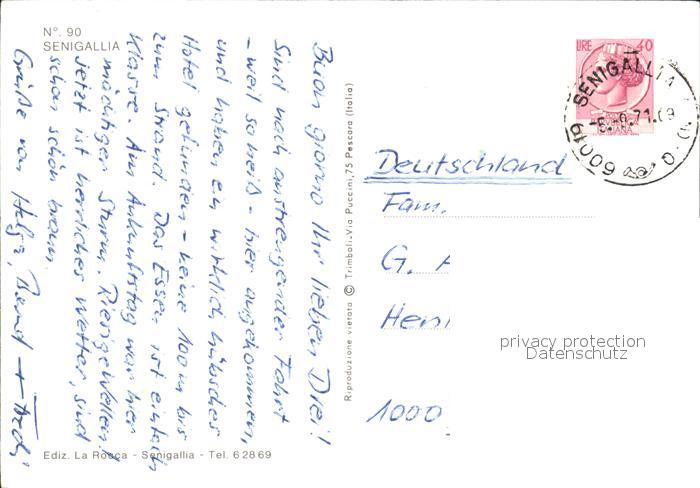 Nº. 90
SENIGALLIA
Buon giorno Ihr lieben Drei!
Sind nach anstrengender Fahrt
- weil so heiß - hier angekommen,
und haben ein wirklich hübsches
Hotel gefunden - keine 100 m bis
zum Strand. Das Essen ist einfach
Klasse. Am Ankunftstag war hier
mächtiger Sturm. Riesige Wellen!
Jetzt ist herrliches Wetter, sind
schon schön braun.
Grüße von Helga, Bernd +
Ediz. La Rocca - Senigallia - Tel. 62869
Riproduzione vietata © Trimboli-Via Puccini,75 Pescara (Italia)
LIRE 40
60019 SENIGALLIA
Deutschland
Fam.
G.
1000
privacy protection
Datenschutz